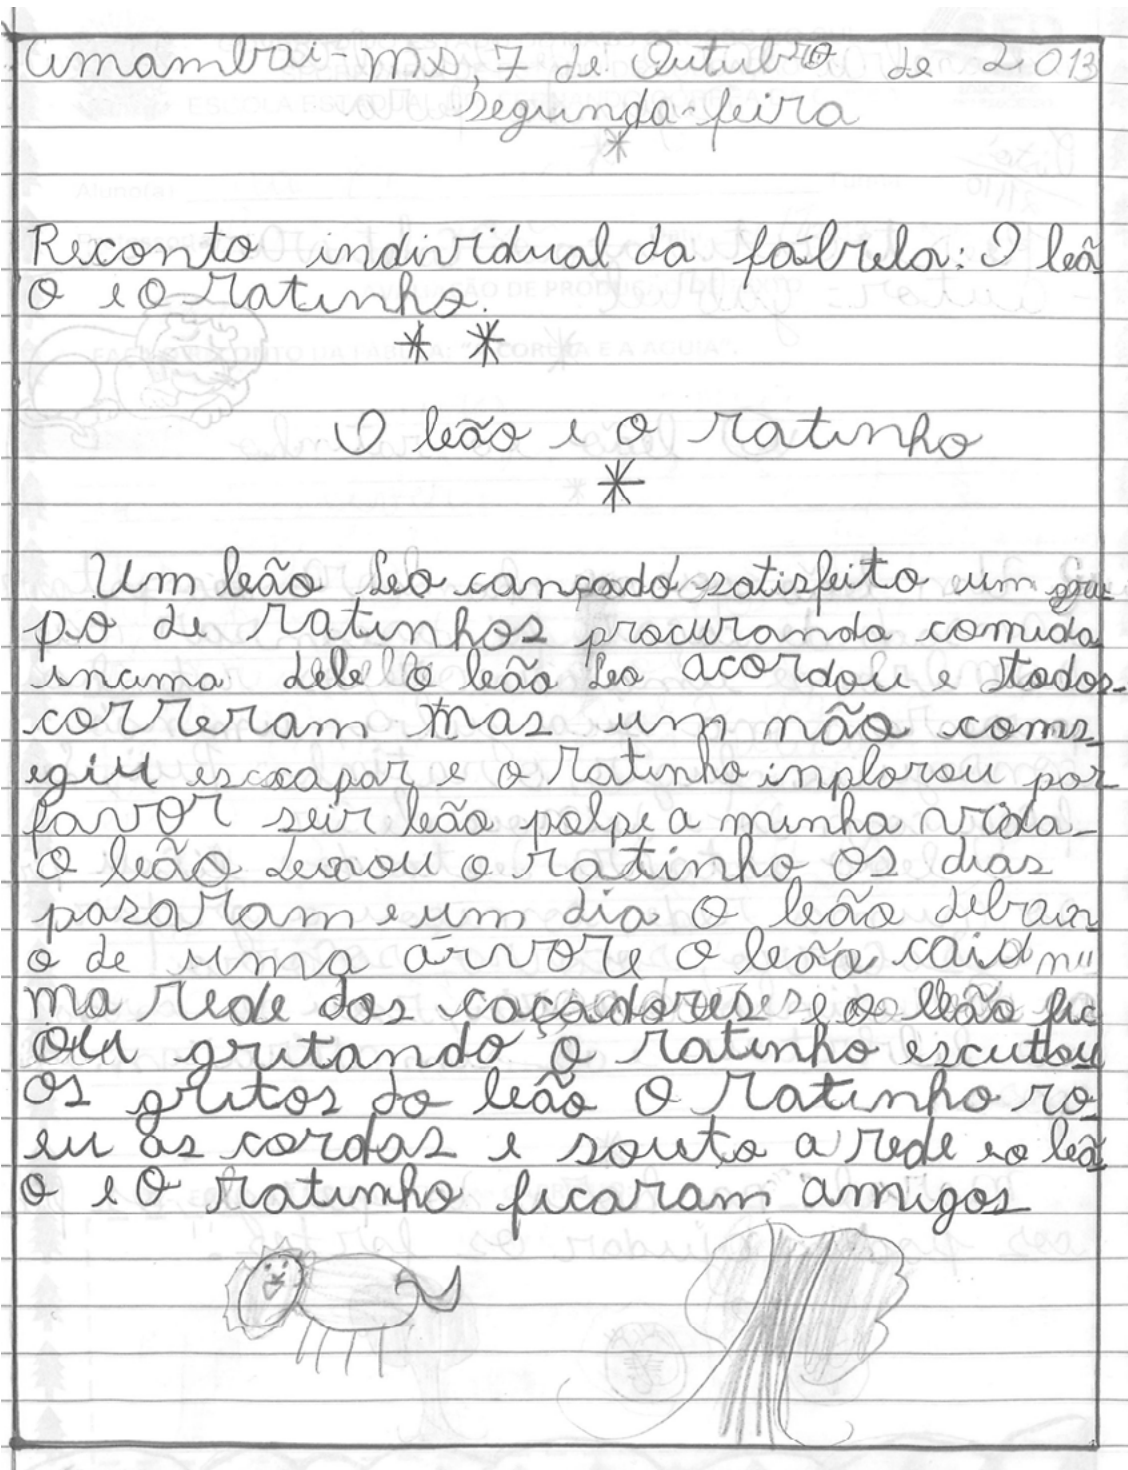 Amambai-ms, 7 de Outubro de 2013
segunda-feira
Reconto individual da fábrela: O leã
o e o ratinho.
O leão e o ratinho
Um leão Leo cançado satisfeito um gru
po de ratinhos procurando comida
incima dele o leão Leo acordou e todos
correram mas um não coms
egiu escapar e o ratinho inplorou por
favor seir leão polpe a minha vida
o leão deixou o ratinho os dias
pasaram e um dia o leão debaix
o de uma árvore o leão caid nu
ma rede dos caçadores e o leão fic
ou gritando o ratinho escutou
os gritos do leão o ratinho ro
eu as cordas e souto a rede e o leã
o e o ratinho ficaram amigos